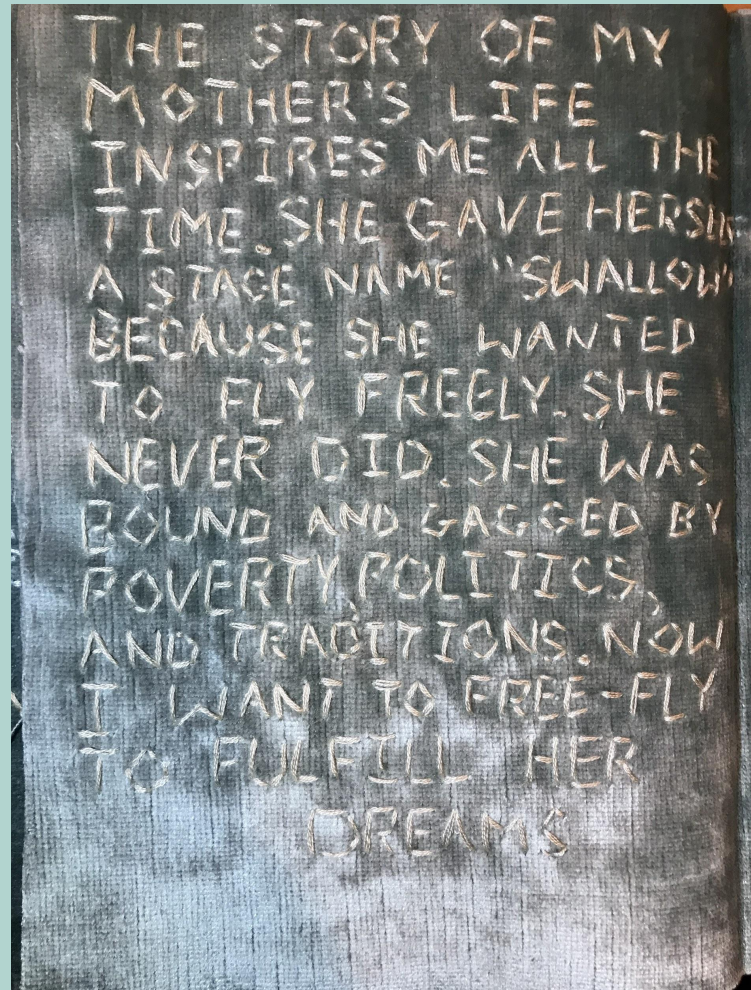 THE STORY OF MY
MOTHER'S LIFE
INSPIRES ME ALL THE
TIME. SHE GAVE HERSELF
A STAGE NAME "SWALLOW"
BECAUSE SHE WANTED
TO FLY FREELY. SHE
NEVER DID. SHE WAS
BOUND AND GAGGED BY
POVERTY, POLITICS,
AND TRADITIONS. NOW
I WANT TO FREE-FLY
TO FULFILL HER
DREAMS